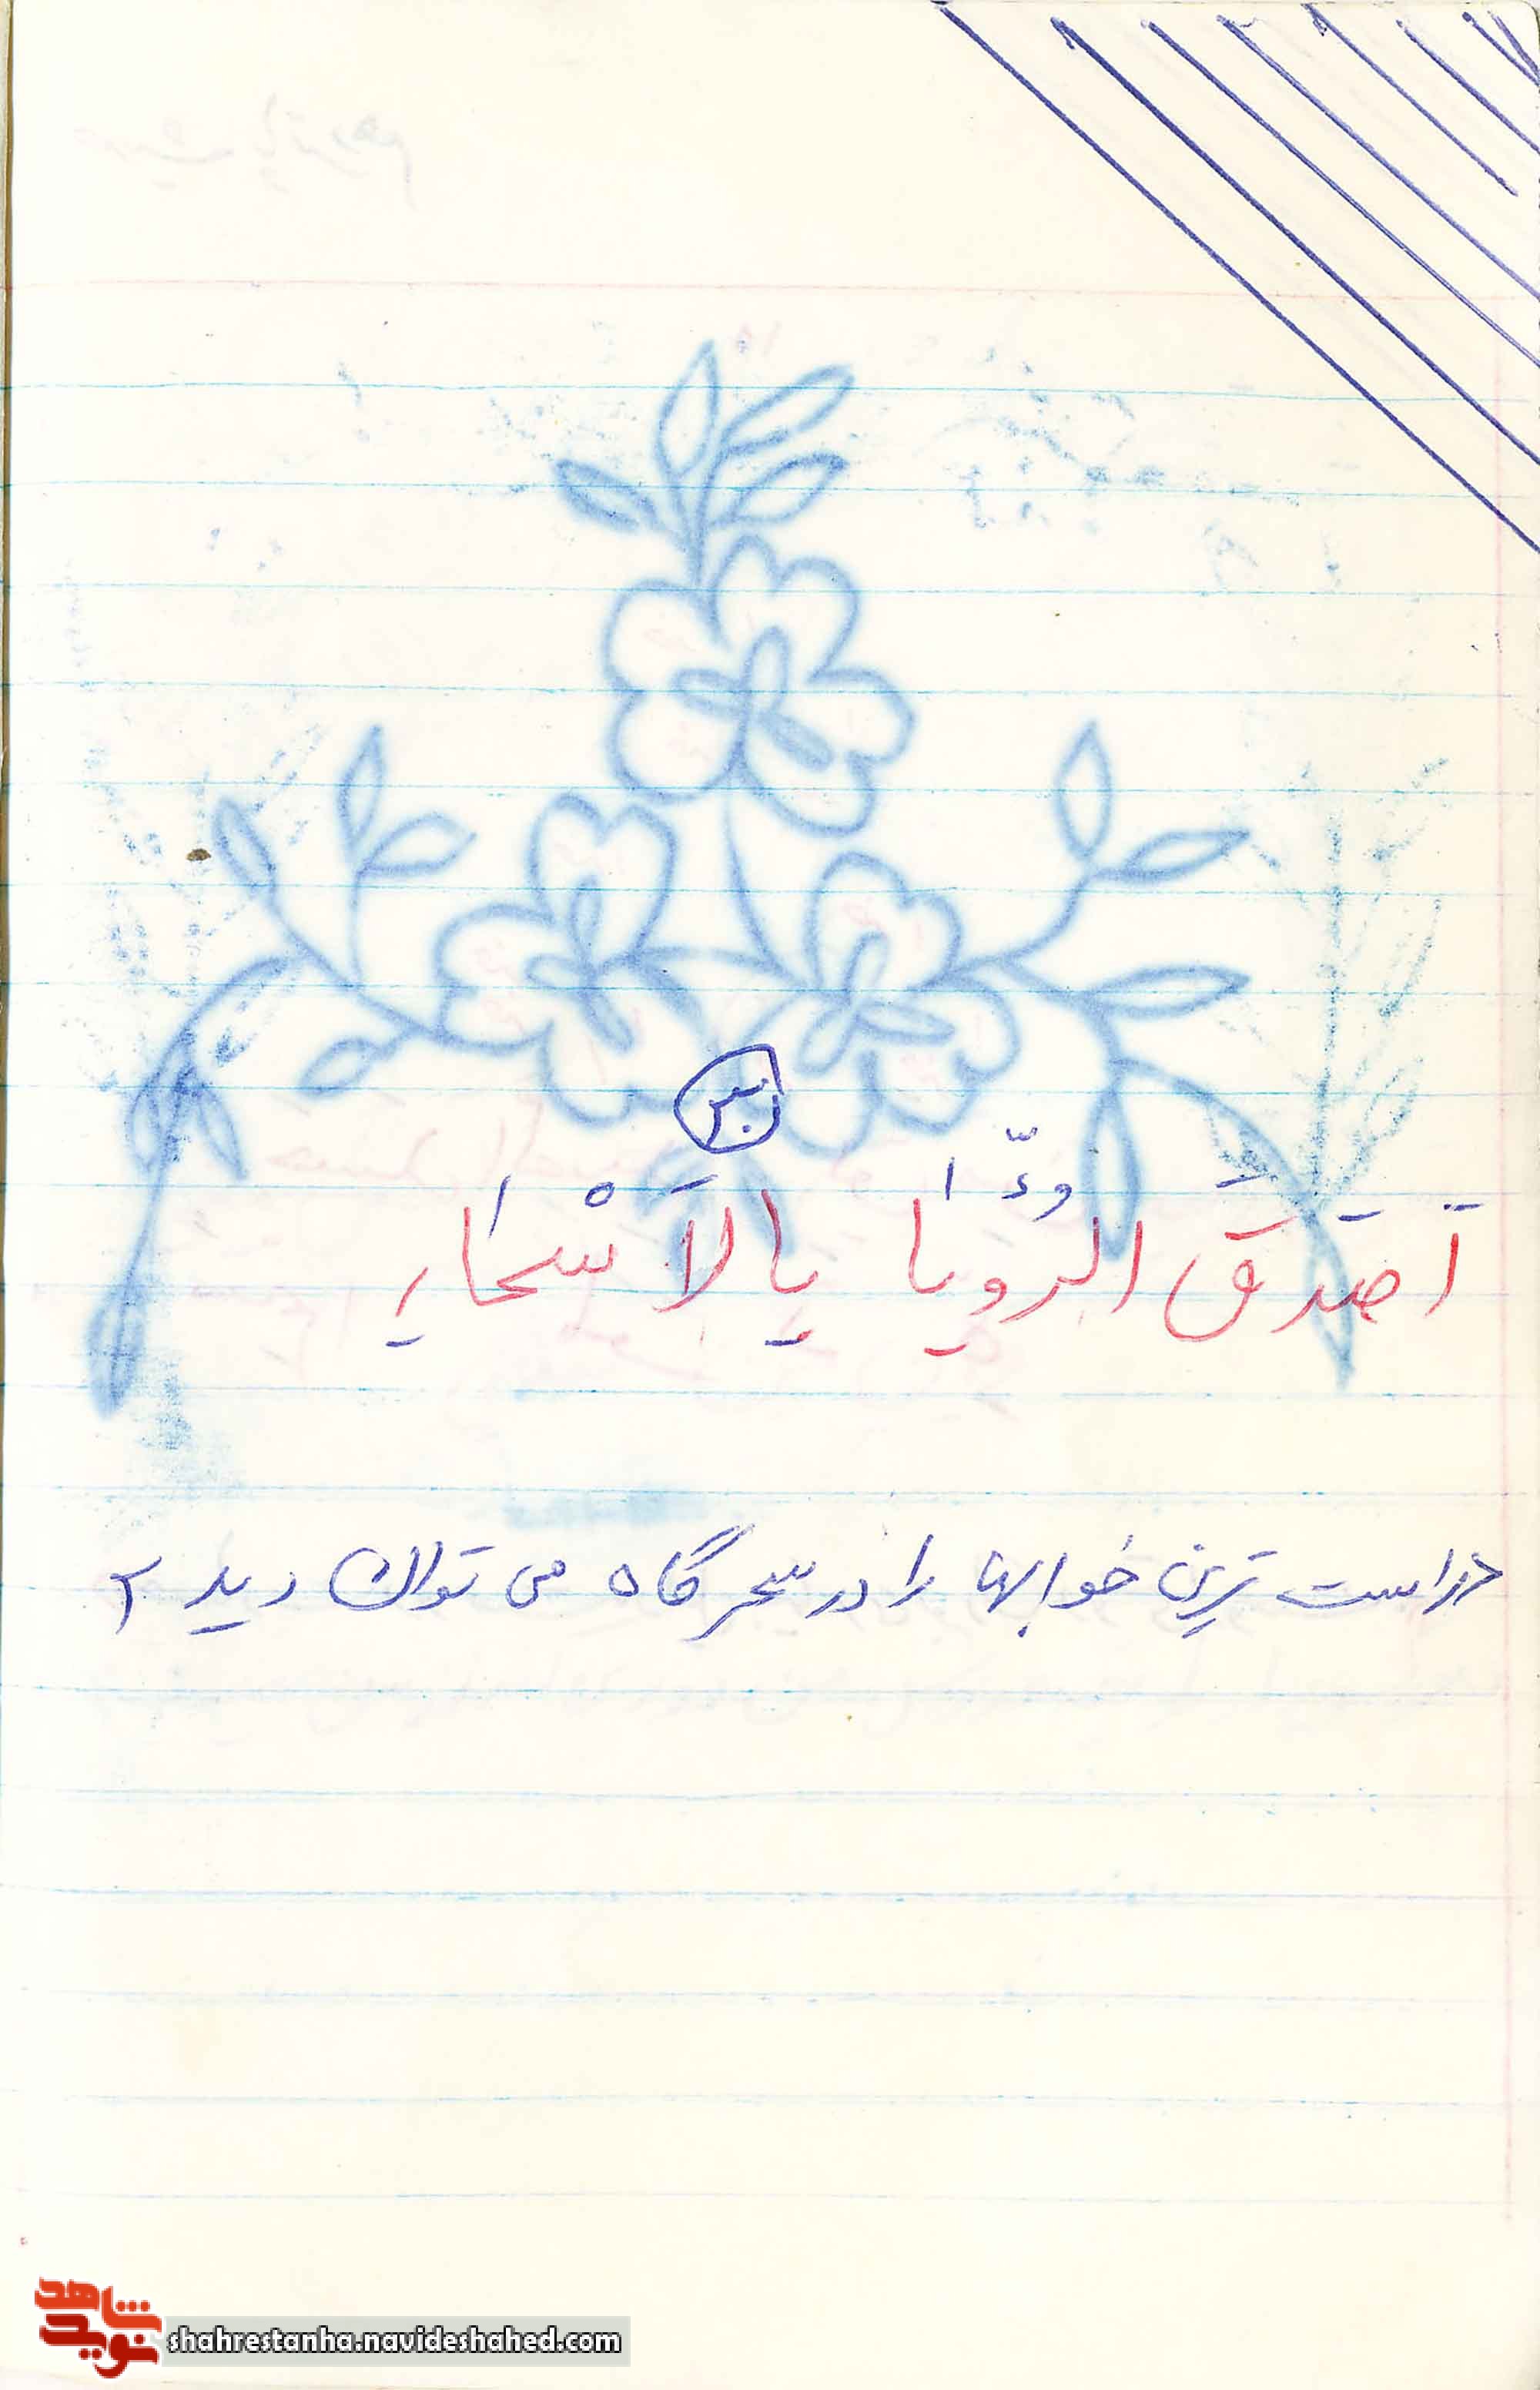 اَصْدَقُ الرُّؤْیا بِالاَسْحارِ
«راست ترین خوابها را در سحرگاه می توان دید»
نوید شاهد
shahrestanha.navideshahed.com